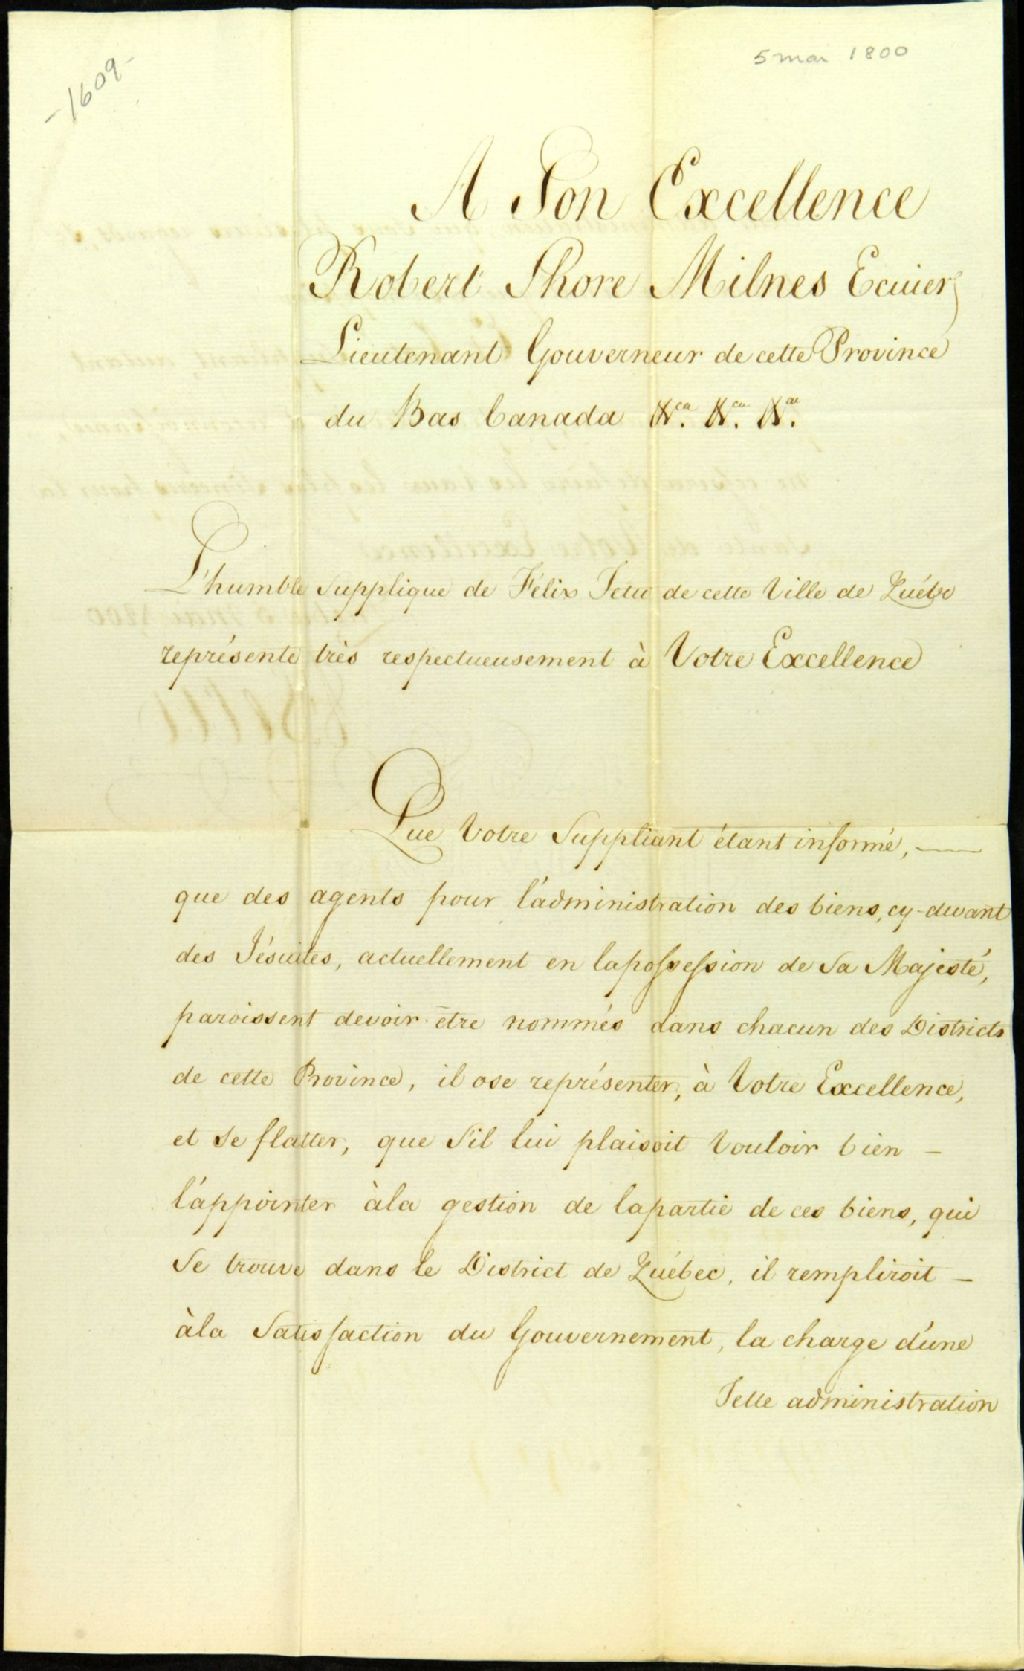 -1609-
5 mai 1800
A Son Excellence
Robert Shore Milnes Ecuier
Lieutenant Gouverneur de cette Province
du Bas Canada &ca. &ca. &ca.
L'humble Supplique de Félix Tetu de cette Ville de Québc
représente très respectueusement à Votre Excellence
Que Votre Suppliant étant informé,
que des agents pour l'administration des biens, cy-devant
des Jésuites, actuellement en la possession de Sa Majesté,
paroissent devoir être nommés dans chacun des Districts
de cette Province, il ose représenter, à Votre Excellence,
et se flatter, que S'il lui plaisoit Vouloir bien –
l'appointer àla gestion de la partie de ces biens, qui
Se trouve dans le District de Québec, il rempliroit –
àla Satisfaction du Gouvernement, la charge d'une
Telle administration